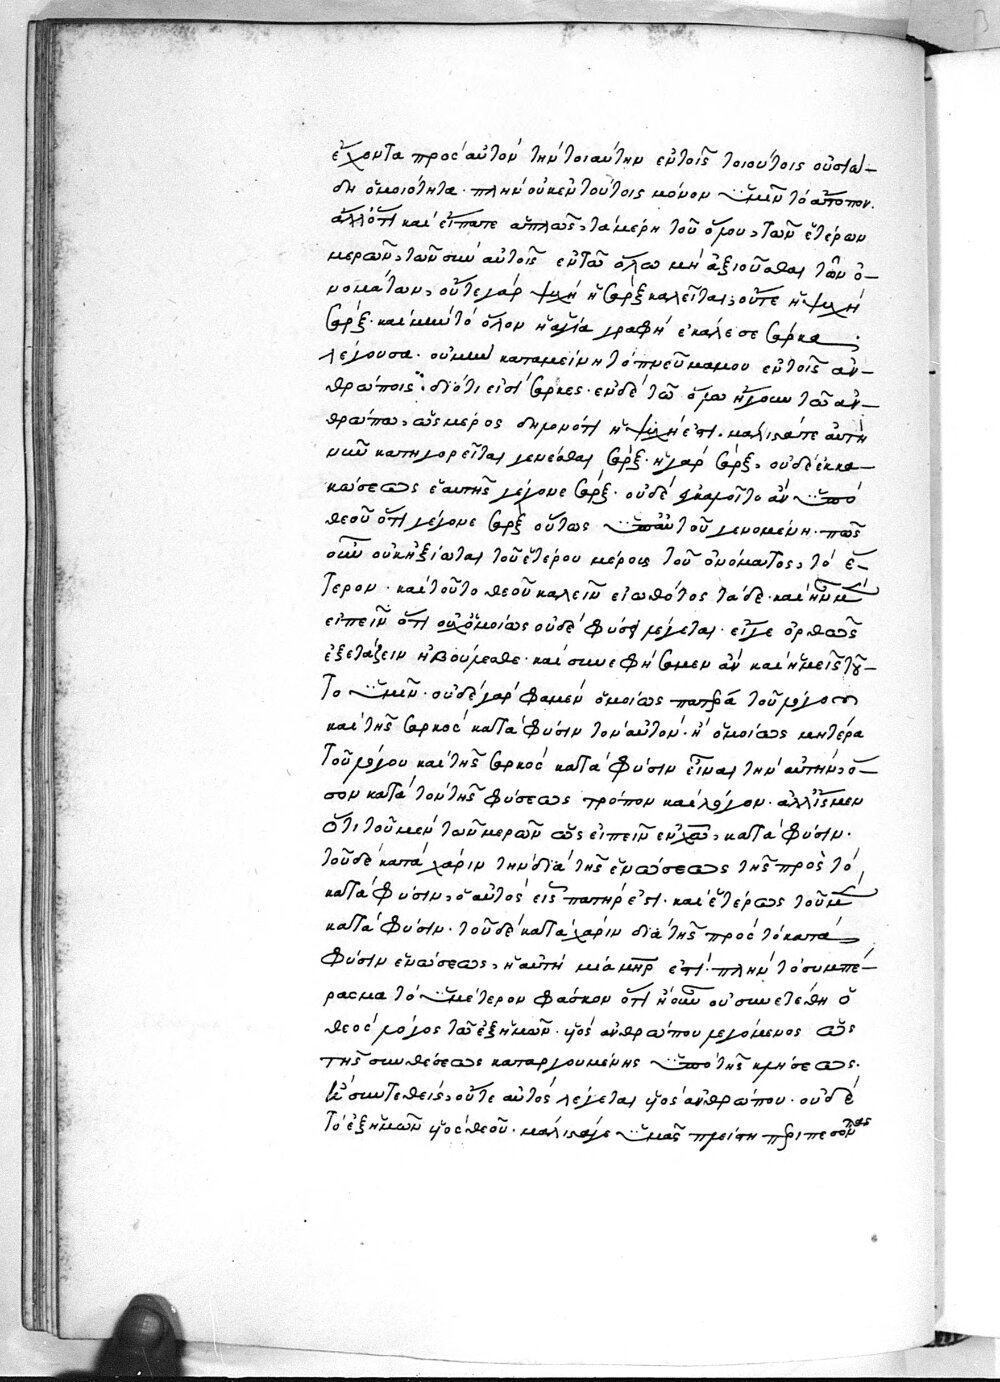 ἔχοντα προς αὐτὸν τὴν τοιαύτην ἐν τοῖς τοιούτοις οὐσιώ-
δη ὁμοιότητα· πλὴν οὐκ ἐν τούτοις μόνον ὑμῖν τὸ ἄτοπον.
ἀλλ' ὅτι καὶ εἴπατε ἁπλῶς, τὰ μέρη τοῦ ὅλου, τῶν ἑτέρων
μερῶν, τῶν σὺν αὐτοῖς ἐν τῶ ὅλω μὴ ἀξιοῦσθαι τῶν ὀ-
νομάτων, οὔτε γὰρ ψυχὴ ἡ σὰρξ καλεῖται, οὔτε ἡ ψυχὴ
σάρξ· καὶ μὴν τὸ ὅλον ἡ ἁγία γραφὴ ἐκάλεσε σάρκα,
λέγουσα· οὐ μὴ καταμείνη τὸ πνεῦμα μου ἐν τοῖς ἀν-
θρώποις· διότι εἰσὶ σάρκες· ἐν δὲ τῶ ὅλω ἤγουν τῶ ἀν-
θρώπω, ὡς μέρος δηλονότι ἡ ψυχή ἐστι. μάλιστά τε αὐτὴ
νῦν κατηγορεῖται γενέσθαι σάρξ· ἡ γὰρ σὰρξ, οὐδὲ ἐκ κα-
κώσεως ἑαυτῆς γέγονε σάρξ· οὐδὲ ἐκαλεῖτο ἂν ὑπὸ
θεοῦ ὅτι γέγονε σὰρξ οὕτως ὑπ' αὐτοῦ γενομένη· πῶς
οὖν οὐκ ἠξίωται τοῦ ἑτέρου μέρους τοῦ ὀνόματος, τὸ ἕ-
τερον· καὶ τοῦτο θεοῦ καλεῖν εἰωθότος τάδε· καὶ ἦν μὲν
εἰπεῖν ὅτι οὐχ ὁμοίως οὐδὲ φύσει λέγεται. εἴγε ὀρθῶς
ἐξετάζειν ἠβούλεσθε· καὶ συνεφήσαμεν ἂν καὶ ἡμεῖς τοῦ-
το ὑμῖν· οὐδὲ γὰρ φαμὲν ὁμοίως πατέρα τοῦ λόγου
καὶ τῆς σαρκὸς κατὰ φύσιν τὸν αὐτόν· ἢ ὁμοίως μητέρα
τοῦ λόγου καὶ τῆς σαρκὸς κατὰ φύσιν εἶναι τὴν αὐτήν, ὅ-
σον κατὰ τὸν τῆς φύσεως τρόπον καὶ λόγον. ἀλλ' ἴσμεν
ὅτι τοῦ μὲν τῶν μερῶν ὡς εἰπεῖν ἐν χῶ, κατὰ φύσιν·
τοῦ δὲ κατὰ χάριν τὴν διὰ τῆς ἑνώσεως τῆς πρὸς τὸ
κατὰ φύσιν, ὁ αὐτὸς εἷς πατήρ ἐστι· καὶ ἑτέρως τοῦ μὲν
κατὰ φύσιν· τοῦ δὲ κατὰ χάριν διὰ τῆς πρὸς τὸ κατὰ
φύσιν ἑνώσεως, ἡ αὐτὴ μία μῆρ ἐστι· πλὴν τὸ συμπέ-
ρασμα τὸ ὑμέτερον φάσκον ὅτι ἢ οὖν οὐ συνετέθη ὁ
θεὸς λόγος τῶ ἐξ ἡμῶν υἱὸς ἀνθρώπου λεγόμενος ὡς
τῆς συνθέσεως καταργουμένης ὑπὸ τῆς κλήσεως·
ἢ συντεθεὶς, οὔτε αὐτὸς λέγεται υἱὸς ἀνθρώπου· οὐδὲ
τὸ ἐξ ἡμῶν υἱὸς θεοῦ· μάλιστά γε ὑμᾶς πλείστη